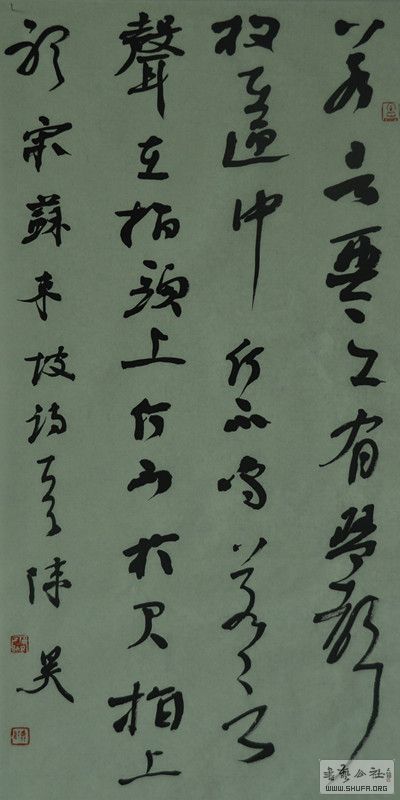 若言琴上有琴聲
放在匣中何不鳴若言
聲在指頭上何不於君指上
聽宋蘇東坡詩一首陳
書藝公社
WWW.SHUFA.ORG